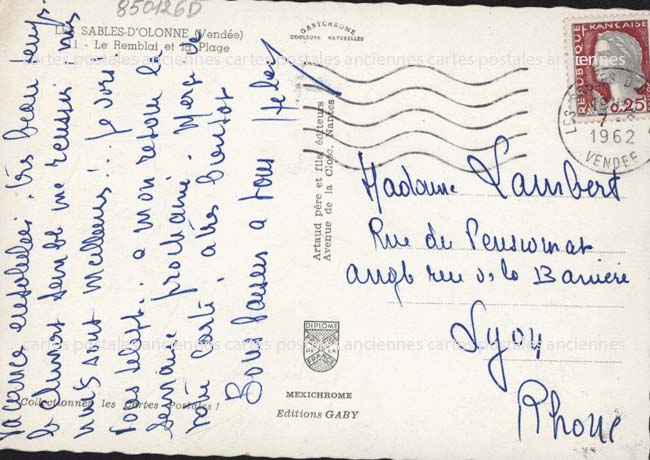 850126D
LES SABLES-D'OLONNE (Vendée)
11 - Le Remblai et la Plage
GABYCHROME
COULEURS NATURELLES
REPUBLIQUE FRANÇAISE
POSTES
0.25
LES SABLES D'
1962
VENDEE
cartes postales anciennes cartes postales anciennes cartes postales anciennes
Vacances ensoleillées. très beau temps.
le climat semble me réussir, mes
nuits sont meilleures!.. Je vous
téléph... à mon retour la
semaine prochaine. Merci de
votre carte, à très bientôt
Bons baisers à tous
Artaud père et fils éditeurs
Avenue de la Close, Nantes
Madame Lambert
Rue du Pensionnat
angle rue de la Barrière
Lyon
Rhone
DIPLOME
PRESTIGE DE LA FRANCE
MEXICHROME
Editions GABY
Collectionnez les Cartes Postales !
cartes postales anciennes cartes postales anciennes cartes postales anciennes